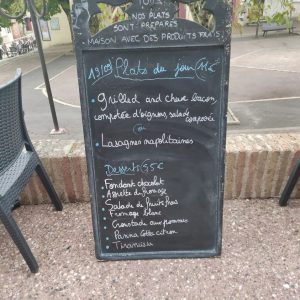 NOS PLATS
SONT PRÉPARÉS
MAISON AVEC DES PRODUITS FRAIS.
Plats du jour
• Grilled and cheese bacon,
compotée d'oignons, salade
composée
ou
• Lasagnes napolitaines
Desserts 5,5€
• Fondant chocolat
• Assiette de fromage
• Salade de fruits frais
• Fromage blanc
• Croustade aux pommes
• Panna Cotta citron
• Tiramisu